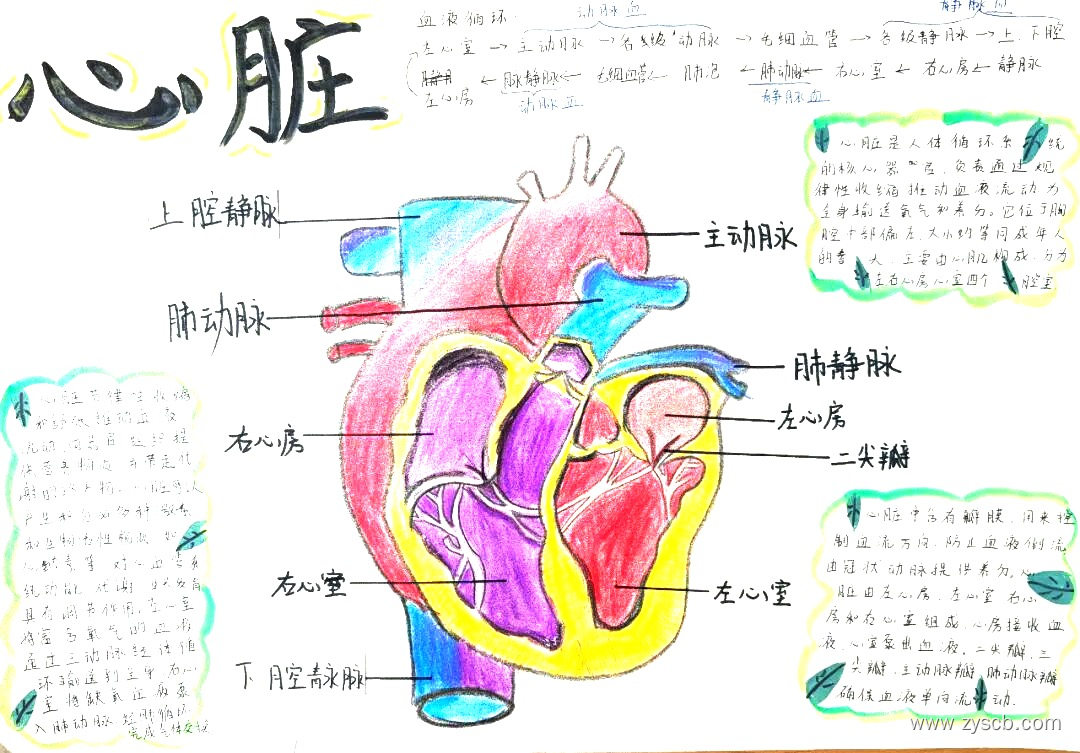 心脏
血液循环:
动脉血
静脉血
左心室 → 主动脉 → 各级动脉 → 毛细血管 → 各级静脉 → 上、下腔
左心房 ← 肺静脉 ← 毛细血管 ← 肺泡 ← 肺动脉 ← 右心室 ← 右心房 ← 静脉
动脉血
静脉血
心脏是人体循环系统
的核心器官,负责通过规
律性收缩推动血液流动为
全身输送氧气和养分。它位于胸
腔中部偏左,大小约等同成年人
的拳大,主要由心肌构成,分为
左右心房心室四个腔室
上腔静脉
主动脉
肺动脉
肺静脉
左心房
右心房
二尖瓣
右心室
左心室
下腔静脉
心脏节律性收缩
产生和分泌多种激素
且有调节作用,左心室
将富含氧气的血液
通过主动脉经体循
环输送到全身,右心
室将缺氧血液泵
入肺动脉经肺循环
完成气体交换
心脏中含有瓣膜,用来控
制血流方向,防止血液倒流
由冠状动脉提供养分,心
脏由左心房、左心室右心
房和右心室组成,心房接收血
液,心室泵出血液,二尖瓣,三
尖瓣,主动脉瓣,肺动脉瓣
确保血液单向流动.
www.zyscb.com